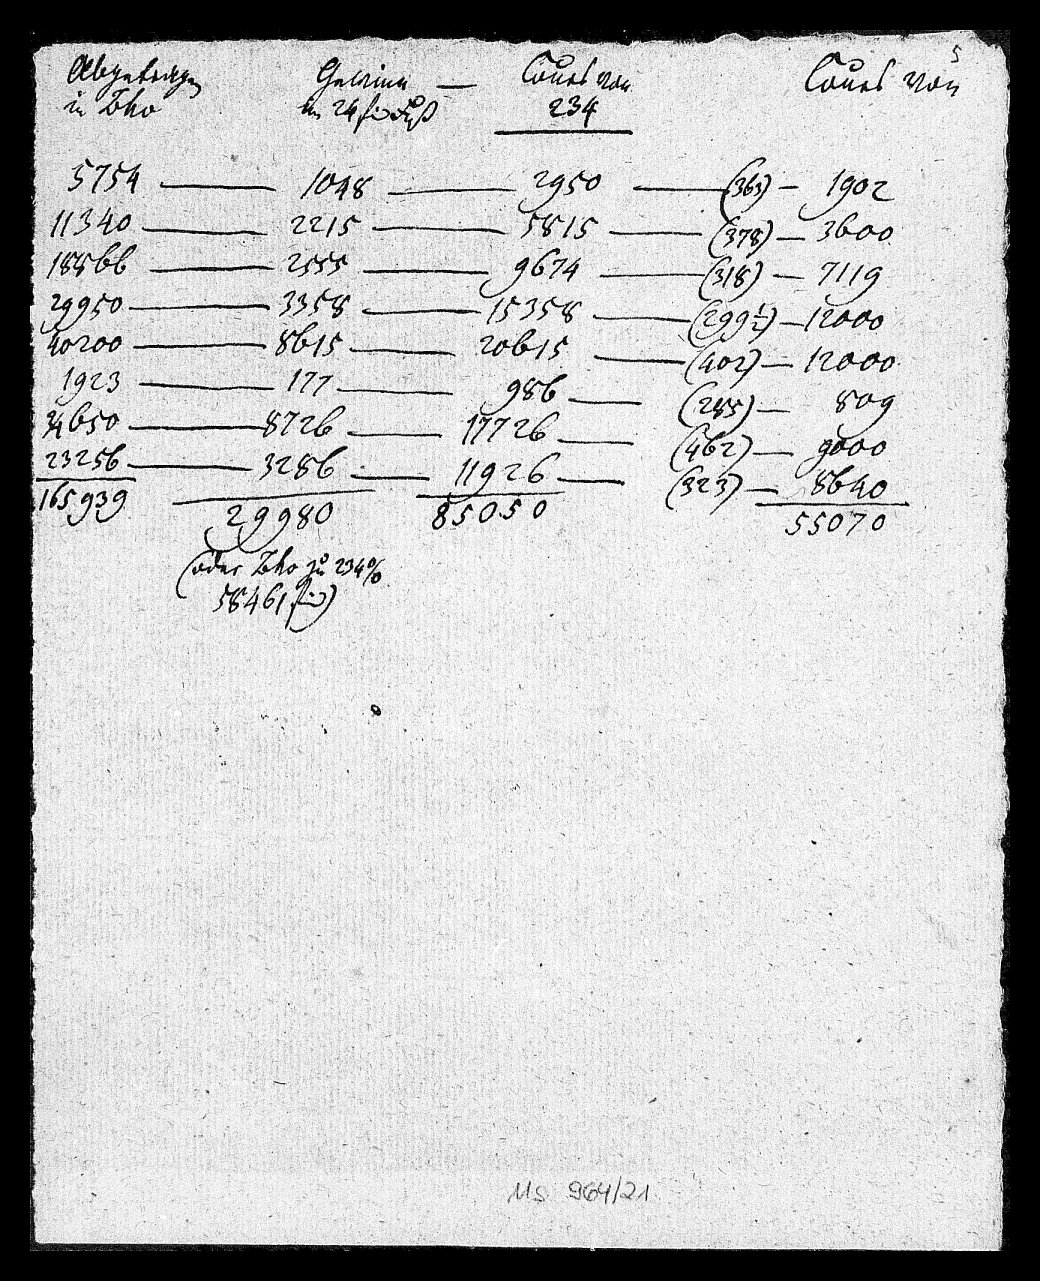 5
Abgetragen Gewinn — Cours von Cours von
in Bko im 24 f Fuß 234
5754 — 1048 — 2950 — (363) — 1902
11340 — 2215 — 5815 — (378) — 3600
18866 — 2555 — 9674 — (318) — 7119
29950 — 3358 — 15358 — (299½) — 12000
40200 — 8615 — 20615 — (402) — 12000
1923 — 177 — 986 — (285) — 809
34650 — 8726 — 17726 — (462) — 9000
23256 — 3286 — 11926 — (323) — 8640
165939 29980 85050 55070
(oder Bko zu 234%
58461 f)
Ms 964/21